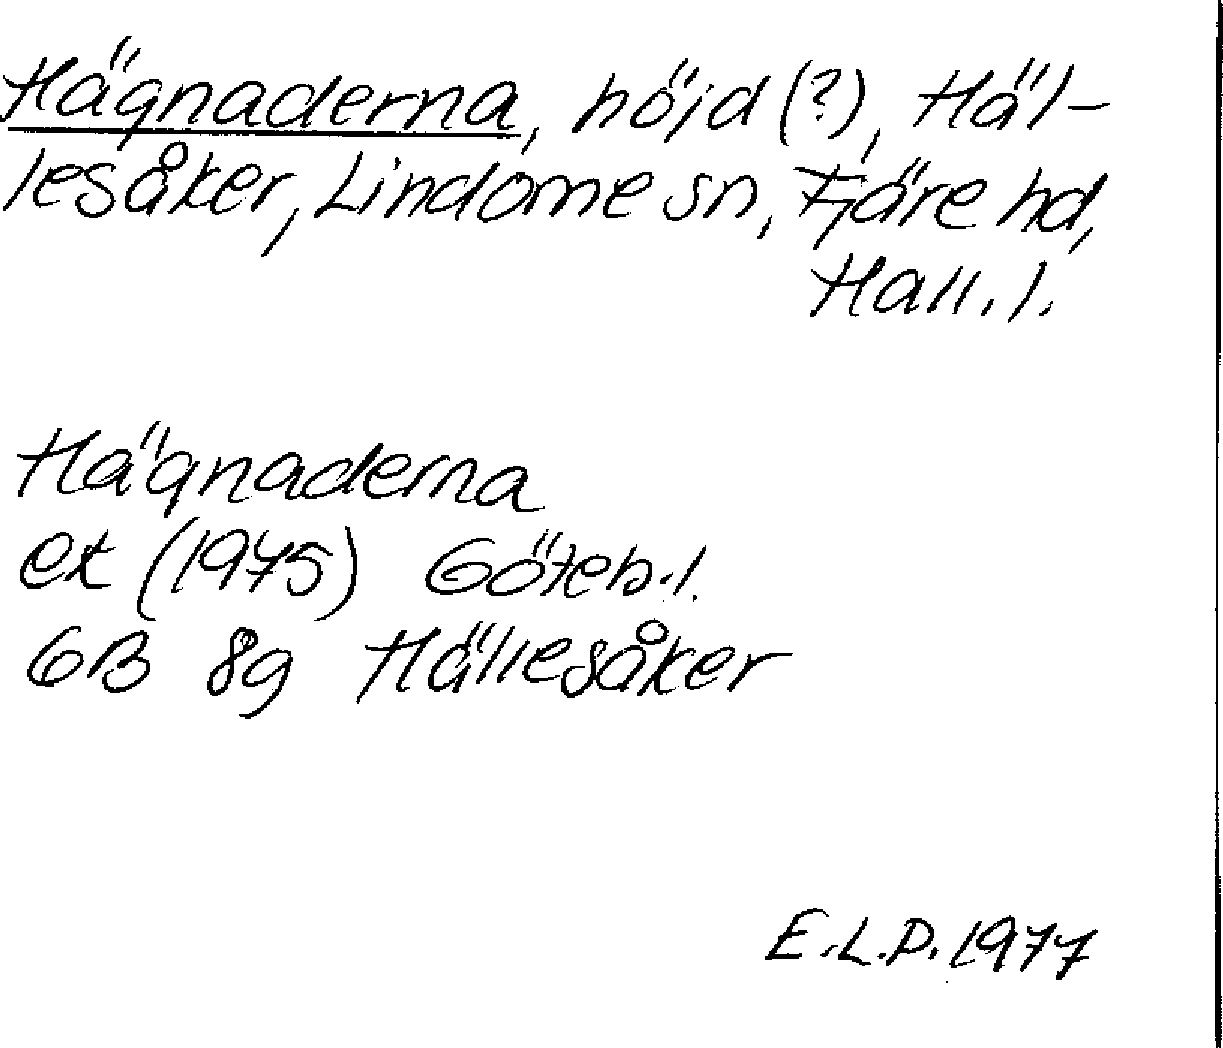 Hägnaderna, höjd (?), Häl-
lesåker, Lindome sn, Fjäre hd,
Hall. l.
Hägnaderna
ek (1975) Göteb. l.
6B 8g Hällesåker
E.L.P. 1977